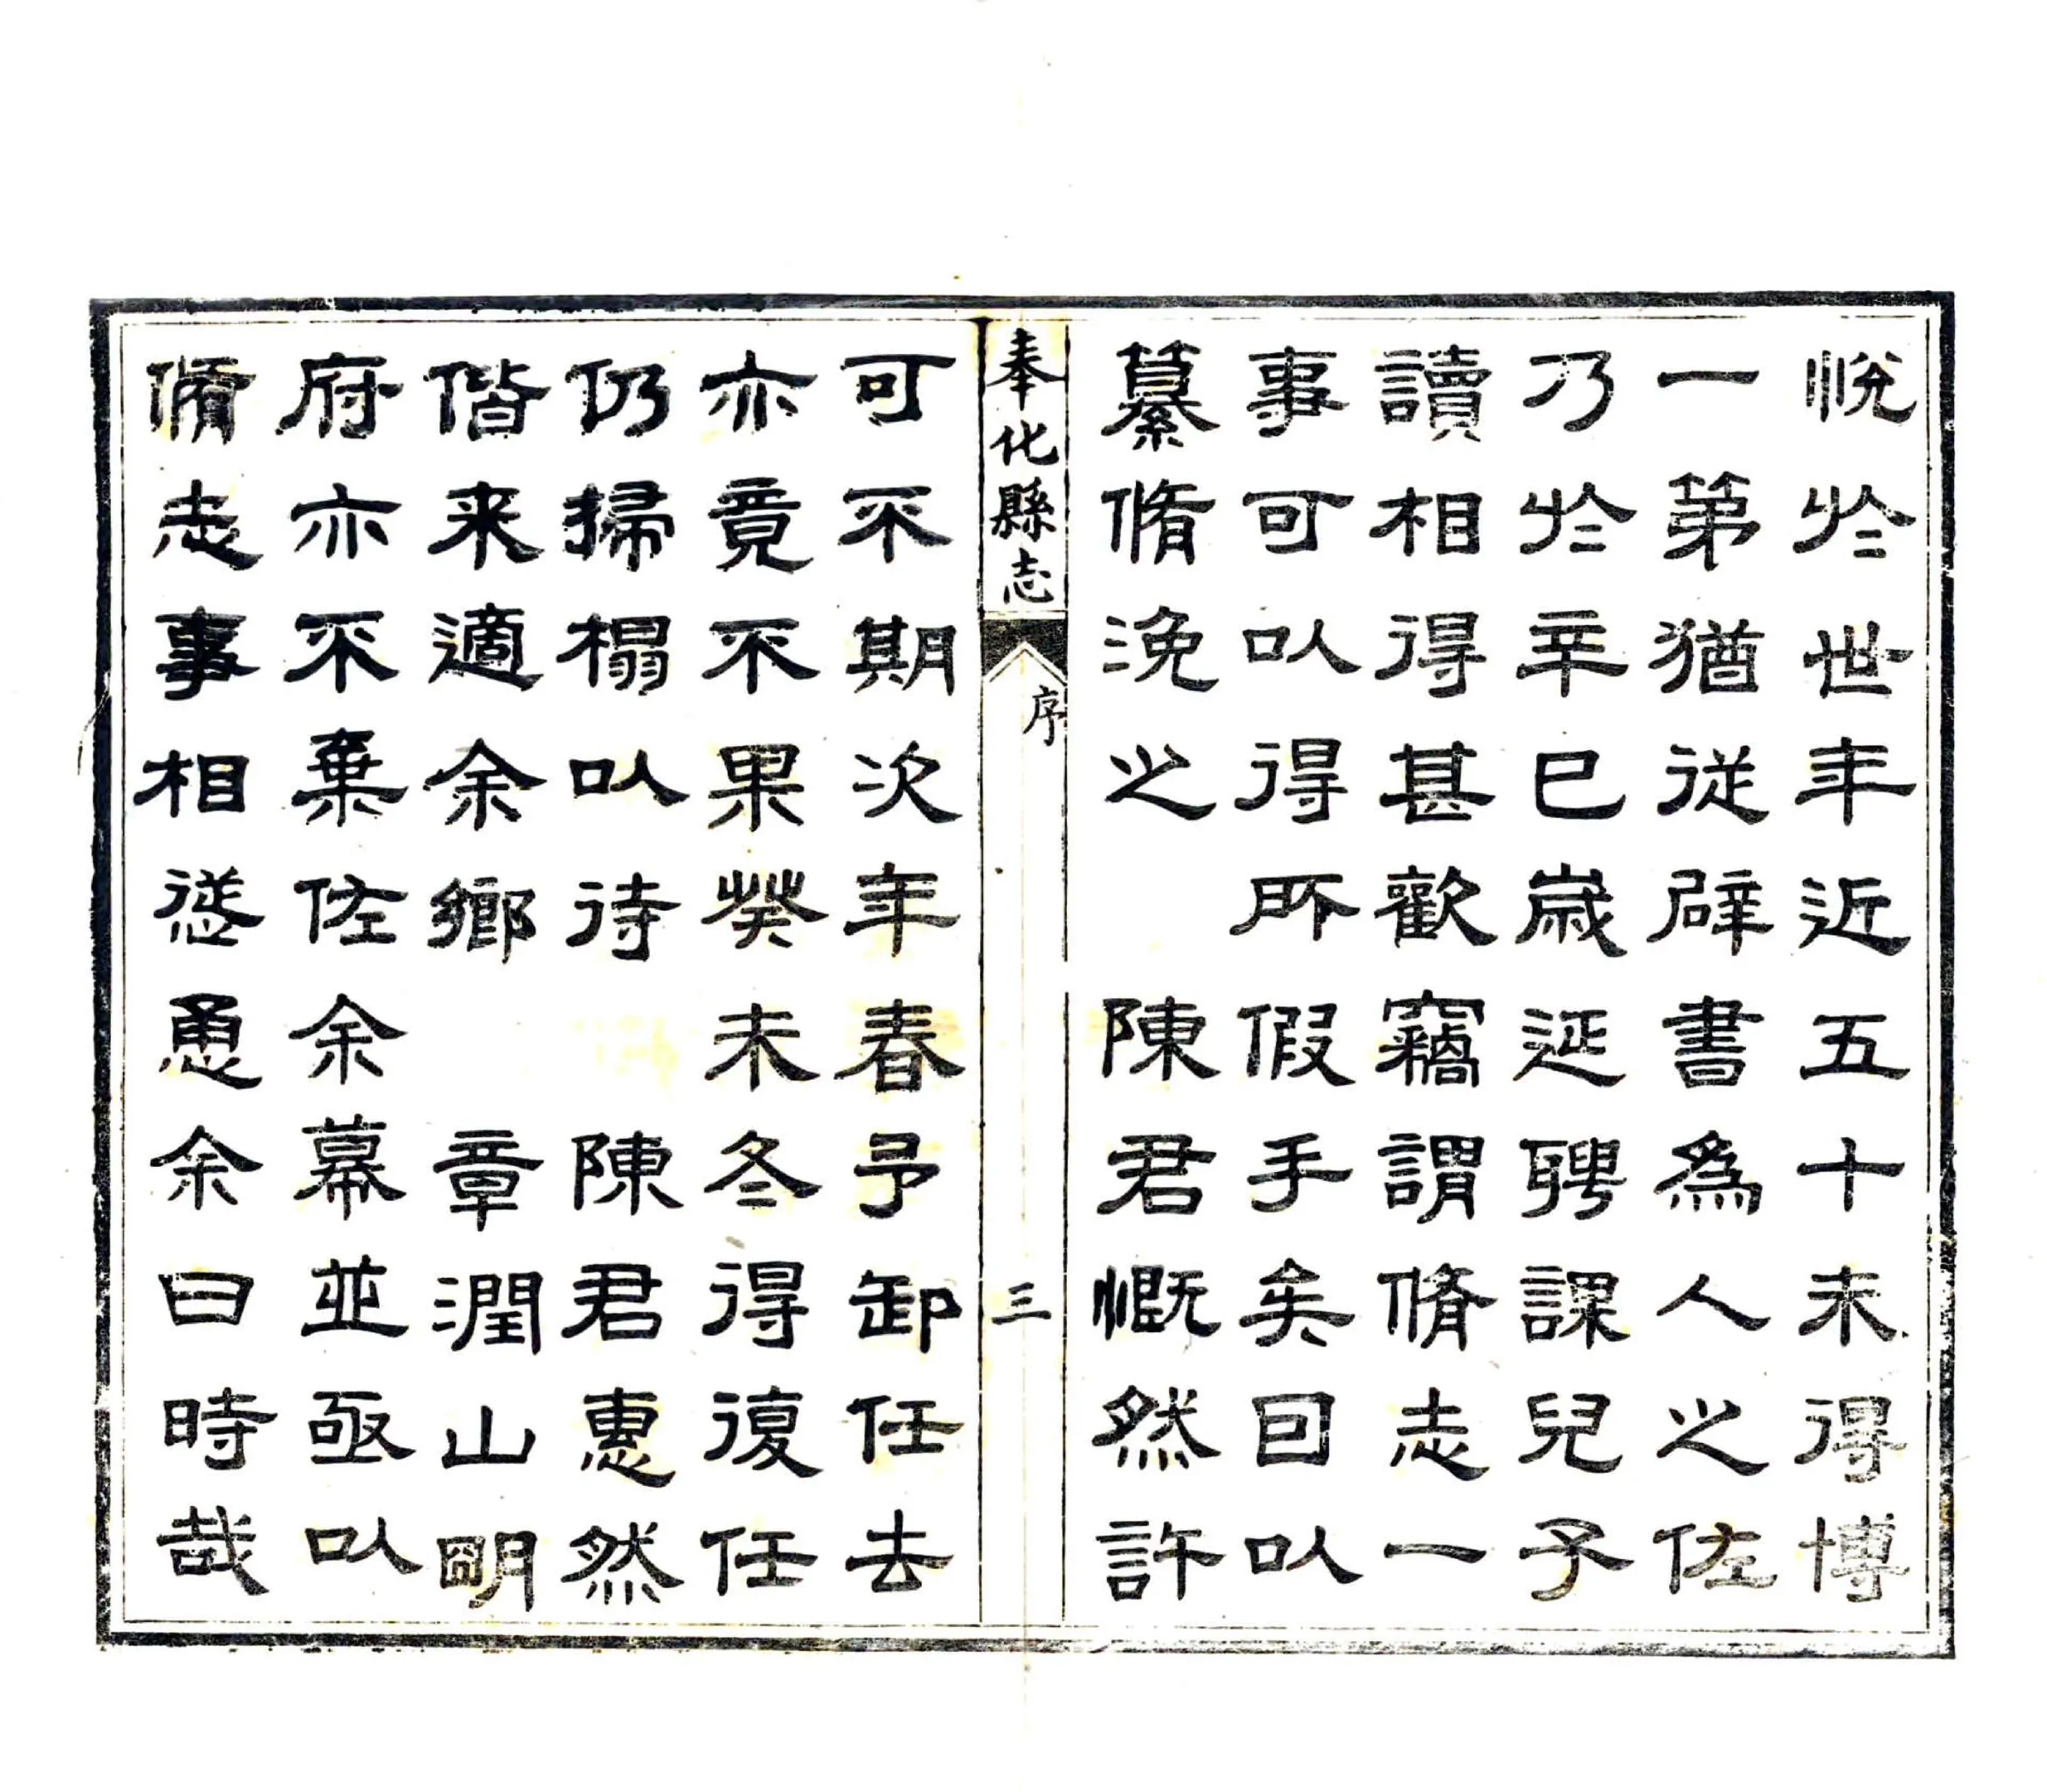 悅於世年近五十未得博
一第猶從辟書爲人之佐
乃於辛巳歲延聘課兒子
讀相得甚歡竊謂脩志一
事可以得所假手矣因以
纂脩浼之　陳君慨然許
奉化縣志
序
三
可不期次年春予卸任去
亦竟不果癸未冬得復任
仍掃榻以待　陳君惠然
偕来適余鄉　章潤山明
府亦不棄佐余幕並亟以
脩志事相慫恿余曰時哉